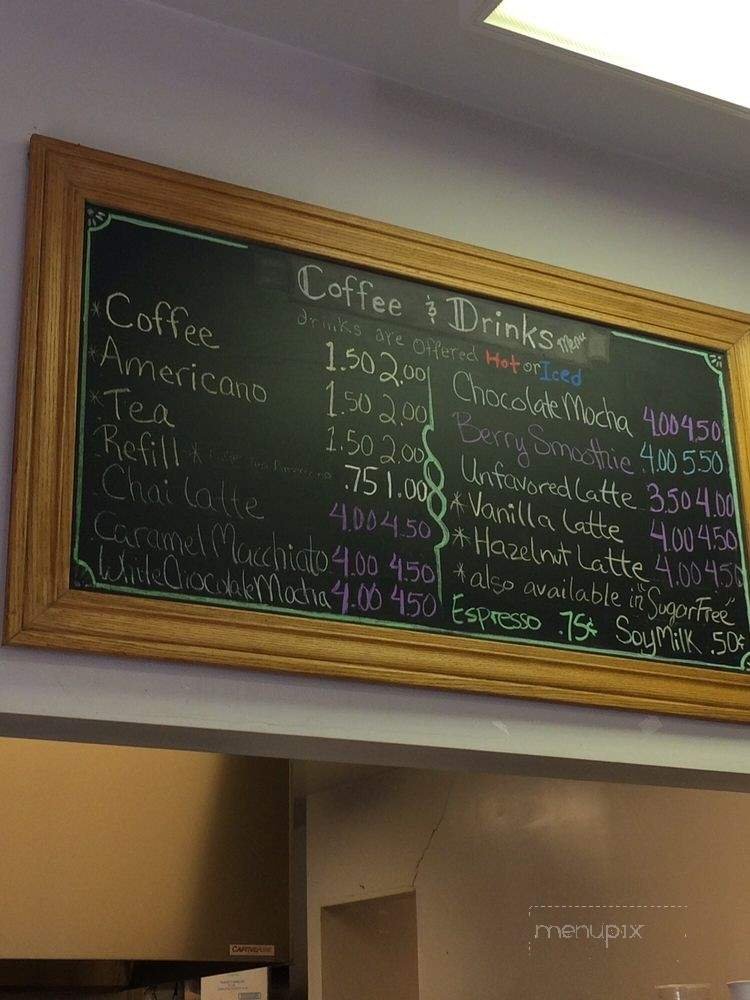 Coffee & Drinks Menu
drinks are offered Hot or Iced
*Coffee 1.50 2.00
*Americano 1.50 2.00
*Tea 1.50 2.00
Refill * .75 1.00
Chai Latte 4.00 4.50
Caramel Macchiato 4.00 4.50
White Chocolate Mocha 4.00 4.50
Chocolate Mocha 4.00 4.50
Berry Smoothie 4.00 5.50
Unfavored Latte 3.50 4.00
*Vanilla Latte 4.00 4.50
*Hazelnut Latte 4.00 4.50
*also available in "Sugar Free"
Espresso .75¢ Soy Milk .50¢
CAPTIVEAIRE
menupix